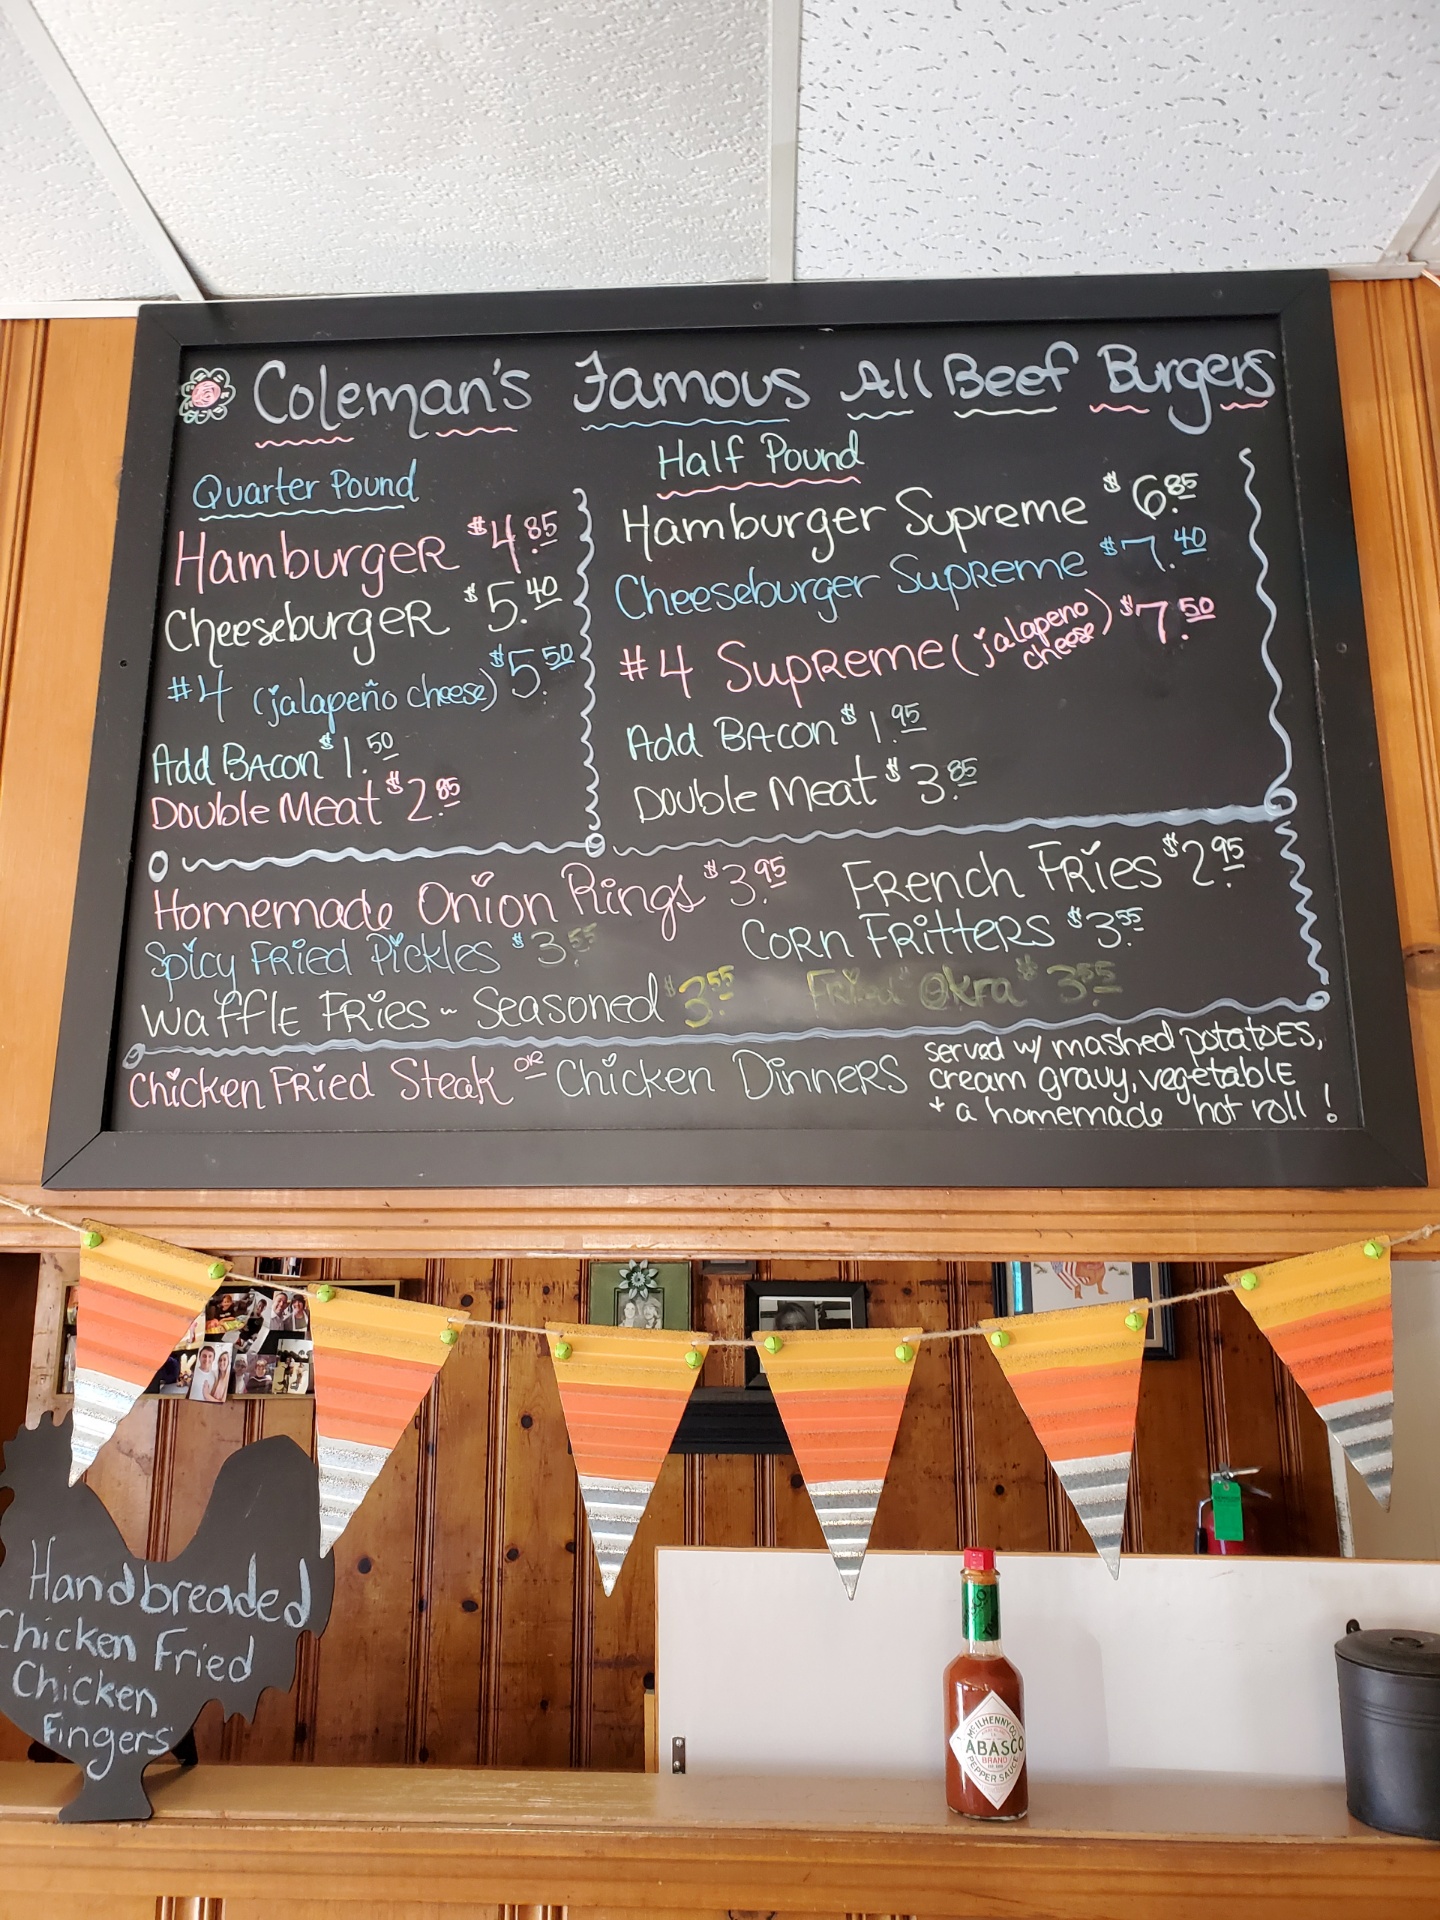 Coleman's Famous All Beef Burgers
Quarter Pound
Hamburger $4.85
Cheeseburger $5.40
#4 (jalapeño cheese) $5.50
Add Bacon $1.50
Double Meat $2.85
Half Pound
Hamburger Supreme $6.85
Cheeseburger Supreme $7.40
#4 Supreme (jalapeno cheese) $7.50
Add Bacon $1.95
Double Meat $3.85
Homemade Onion Rings $3.95
French Fries $2.95
Spicy Fried Pickles $3.55
Corn Fritters $3.55
Waffle Fries ~ Seasoned $3.55
Fried Okra $3.55
Chicken Fried Steak or Chicken Dinners
served w/ mashed potatoes,
cream gravy, vegetable
+ a homemade hot roll!
Handbreaded
Chicken Fried
Chicken
Fingers
McILHENNY CO.
TABASCO
BRAND
PEPPER SAUCE